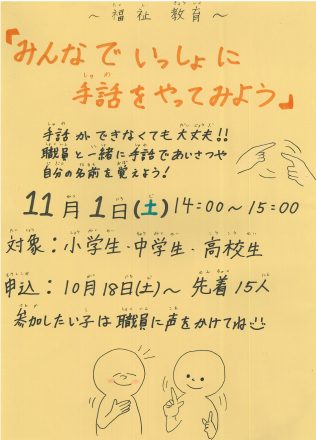 ～福祉教育～
「みんなでいっしょに
手話をやってみよう」
手話ができなくても大丈夫!!
職員と一緒に手話であいさつや
自分の名前を覚えよう!
11月1日(土)14:00～15:00
対象：小学生・中学生・高校生
申込：10月18日(土)～先着15人
参加したい子は職員に声をかけてね